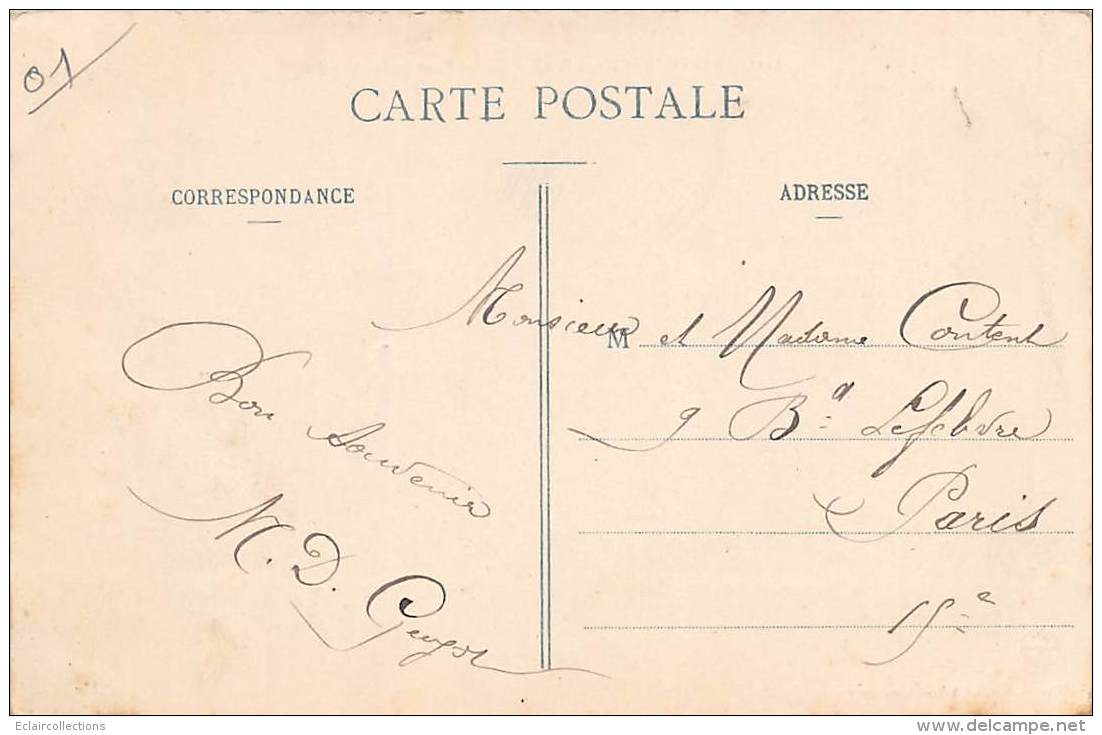 01
CARTE POSTALE
CORRESPONDANCE
Bon souvenir
M. D. Guyot
ADRESSE
Monsieur M et Madame Content
9 Bd Lefebvre
Paris
15e
Eclaircollections
www.delcampe.net